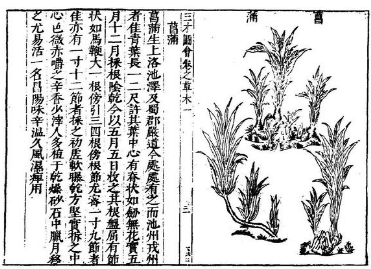 菖
蒲
三才圖會 卷之草木一
菖蒲
菖蒲生上洛池澤及蜀郡嚴道今處處有之而池州戎州
者佳青葉長一二尺許其葉中心有脊狀如劔無花實五
月十二月採根陰乾今以五月五日收之其根盤屈有節
狀如馬鞭大一根傍引三四根傍根節尤密一寸九節者
佳亦有一寸十二節者採之初虛軟曝乾方堅實折之中
心色微赤嚼之辛香少滓人多植于乾燥砂石中臘月移
之尤易活一名昌陽味辛溫久風濕痺用